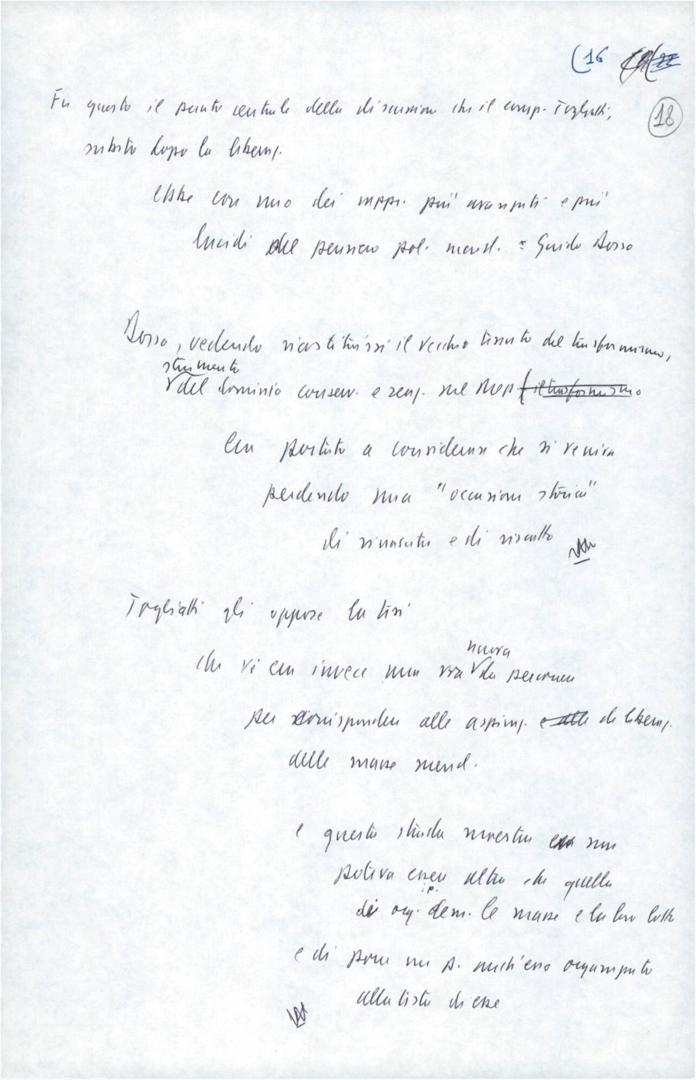 (16
18
Fu questo il punto centrale della discussione che il comp. Togliatti,
subito dopo la liberaz.
ebbe con uno dei rappr. più avanzati e più
lucidi del pensiero pol. merid. : Guido Dorso
Dorso, vedendo ricostituirsi il vecchio tessuto del trasformismo,
strumento
del dominio conserv. e reaz. nel Mezz. il trasformismo
era portato a considerare che si veniva
perdendo una "occasione storica"
di rinascita e di riscatto
Togliatti gli oppose la tesi
che vi era invece una via da percorrere
nuova
per corrispondere alle aspiraz. e alle di liberaz.
delle masse merid.
e questa strada maestra non
poteva essere altro che quella
di org. dem. le masse e la loro lotta
e di porre un p. anch'esso organizzato
alla testa di esse